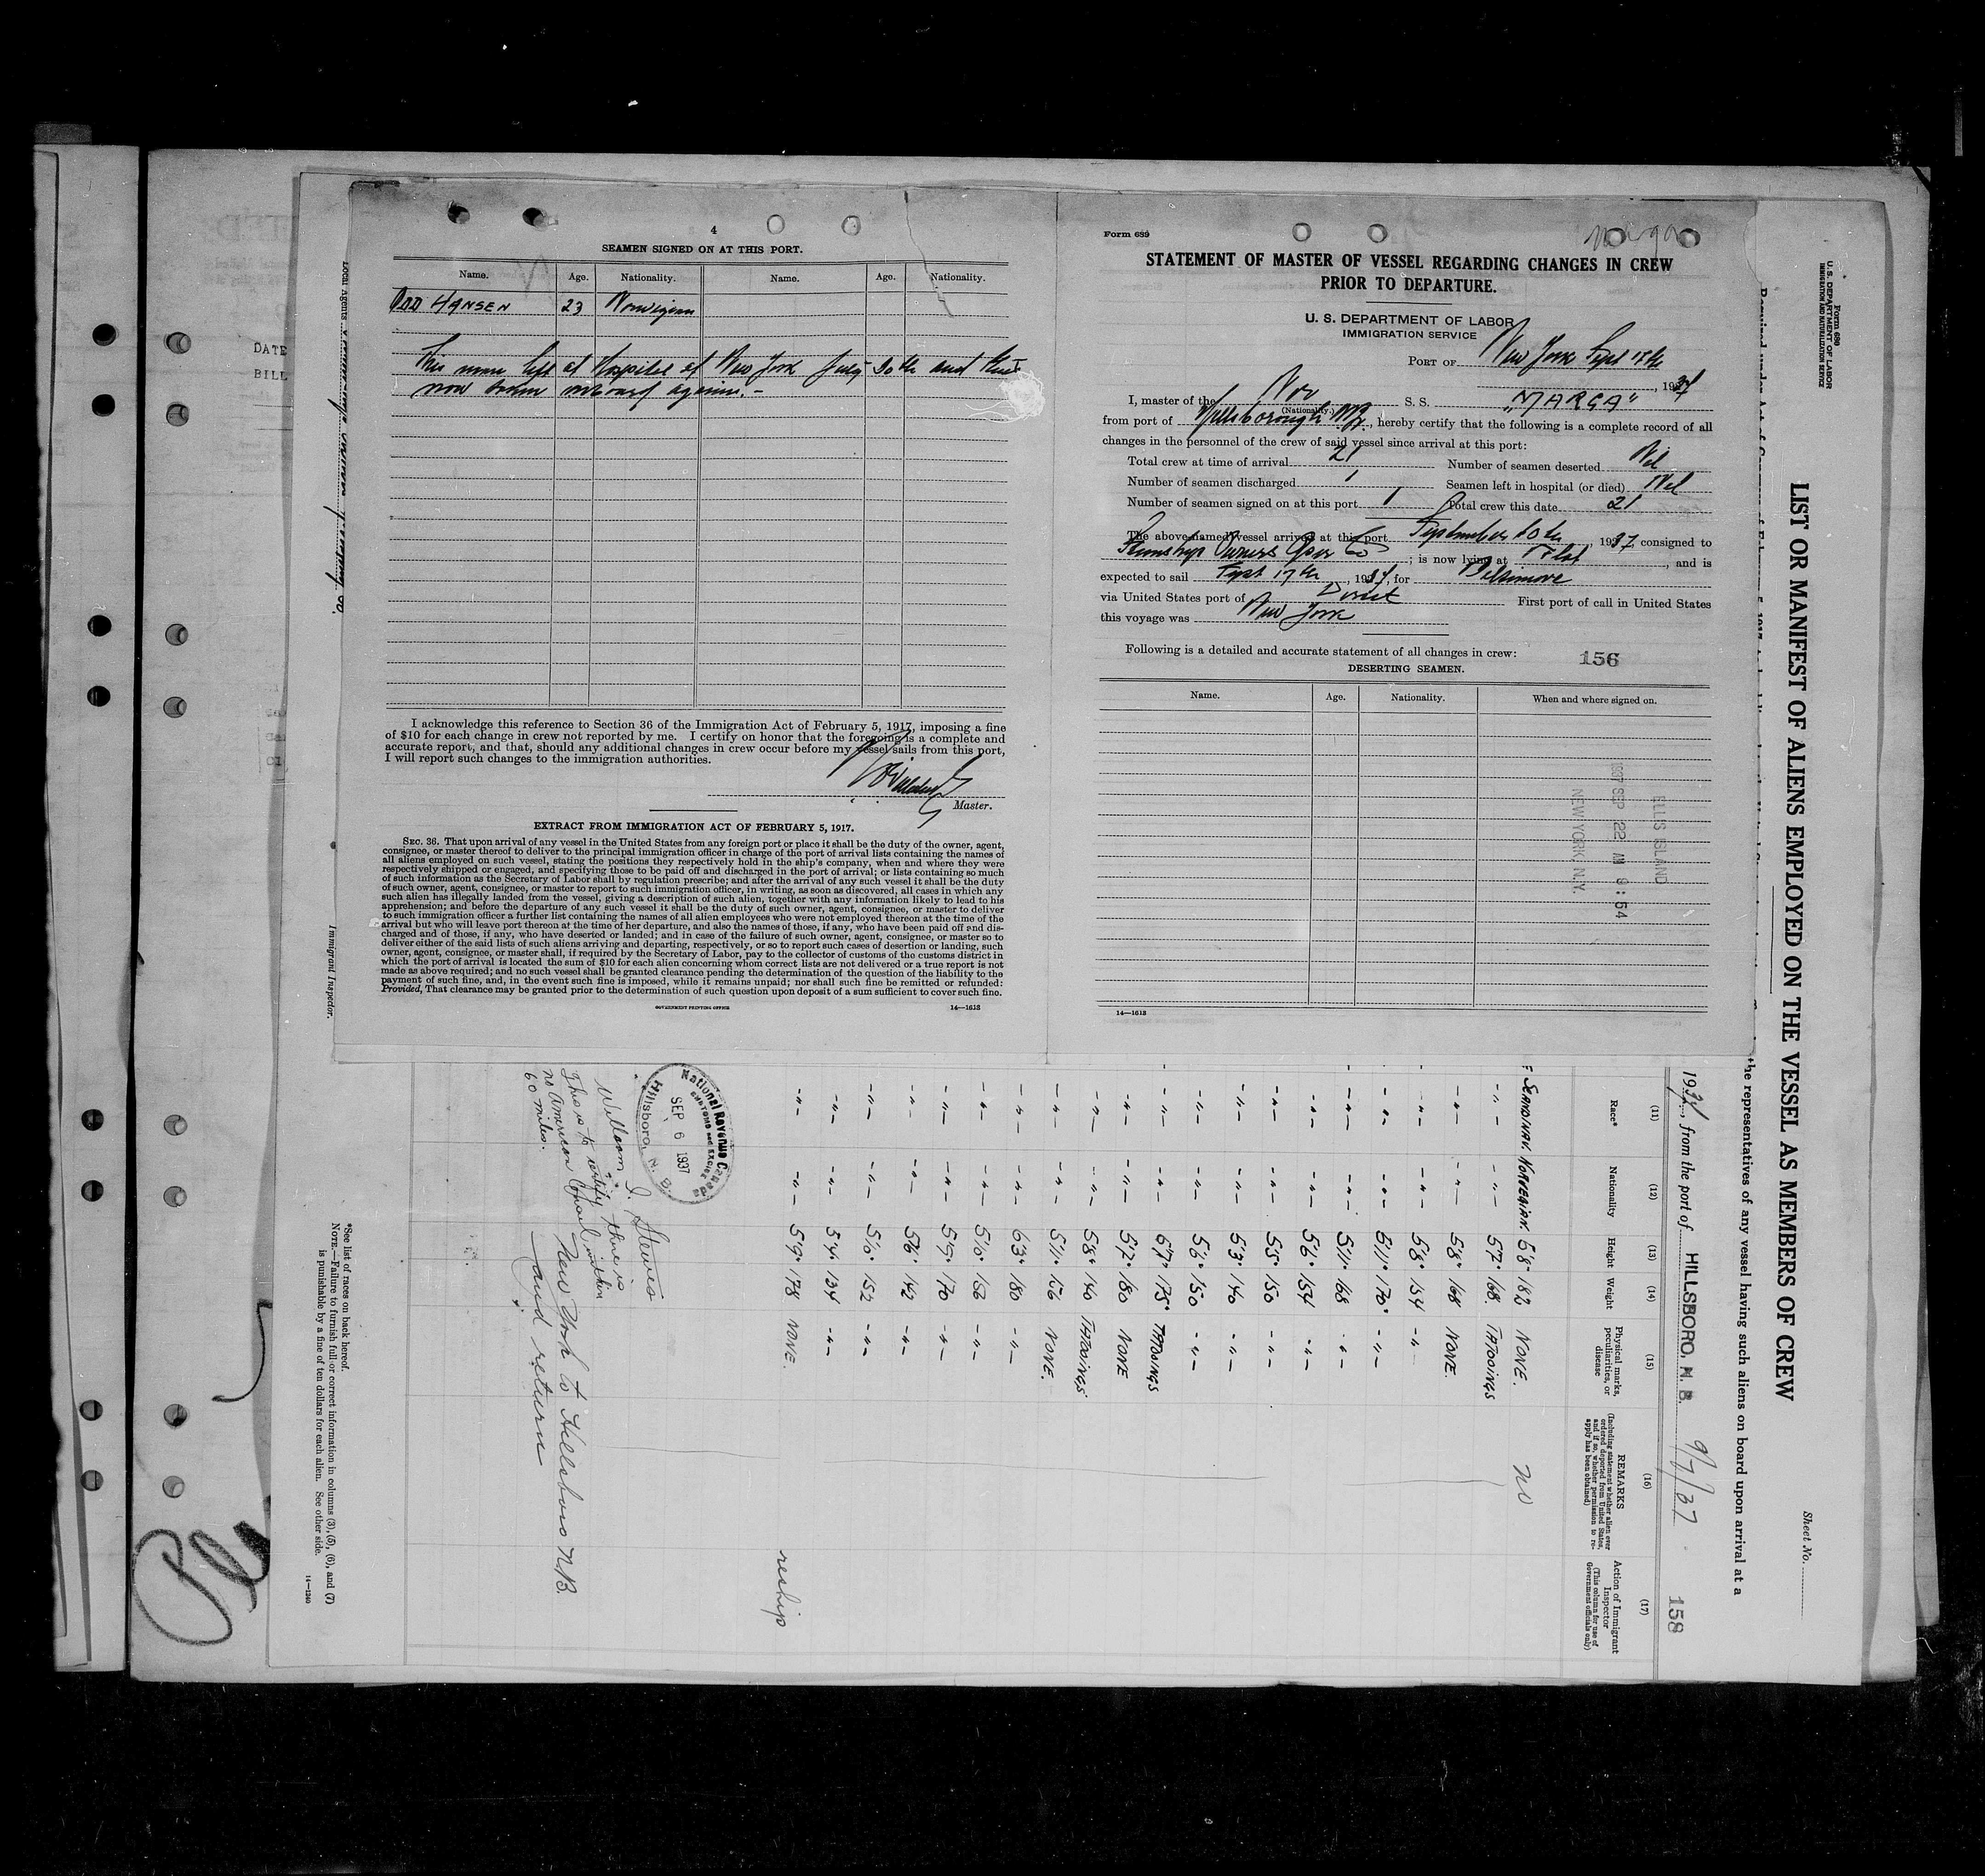 4
SEAMEN SIGNED ON AT THIS PORT.
Name. Age. Nationality. Name. Age. Nationality.
ODD HANSEN 23 Norwigian
This man left at Hospital at New York July 30th and
now been onboard again.-
I acknowledge this reference to Section 36 of the Immigration Act of February 5, 1917, imposing a fine
of $10 for each change in crew not reported by me. I certify on honor that the foregoing is a complete and
accurate report, and that, should any additional changes in crew occur before my vessel sails from this port,
I will report such changes to the immigration authorities.
Master.
EXTRACT FROM IMMIGRATION ACT OF FEBRUARY 5, 1917.
SEC. 36. That upon arrival of any vessel in the United States from any foreign port or place it shall be the duty of the owner, agent,
consignee, or master thereof to deliver to the principal immigration officer in charge of the port of arrival lists containing the names of
all aliens employed on such vessel, stating the positions they respectively hold in the ship's company, when and where they were
respectively shipped or engaged, and specifying those to be paid off and discharged in the port of arrival; or lists containing so much
of such information as the Secretary of Labor shall by regulation prescribe; and after the arrival of any such vessel it shall be the duty
of such owner, agent, consignee, or master to report to such immigration officer, in writing, as soon as discovered, all cases in which any
such alien has illegally landed from the vessel, giving a description of such alien, together with any information likely to lead to his
apprehension; and before the departure of any such vessel it shall be the duty of such owner, agent, consignee, or master to deliver
to such immigration officer a further list containing the names of all alien employees who were not employed thereon at the time of the
arrival but who will leave port thereon at the time of her departure, and also the names of those, if any, who have been paid off and dis-
charged and of those, if any, who have deserted or landed; and in case of the failure of such owner, agent, consignee, or master so to
deliver either of the said lists of such aliens arriving and departing, respectively, or so to report such cases of desertion or landing, such
owner, agent, consignee, or master shall, if required by the Secretary of Labor, pay to the collector of customs of the customs district in
which the port of arrival is located the sum of $10 for each alien concerning whom correct lists are not delivered or a true report is not
made as above required; and no such vessel shall be granted clearance pending the determination of the question of the liability to the
payment of such fine, and, in the event such fine is imposed, while it remains unpaid; nor shall such fine be remitted or refunded:
Provided, That clearance may be granted prior to the determination of such question upon deposit of a sum sufficient to cover such fine.
GOVERNMENT PRINTING OFFICE 14—1613
Form 689
STATEMENT OF MASTER OF VESSEL REGARDING CHANGES IN CREW
PRIOR TO DEPARTURE.
U. S. DEPARTMENT OF LABOR
IMMIGRATION SERVICE
PORT OF New York Sept 17th
, 1937
I, master of the Nor S. S. "MARGA"
(Nationality.)
from port of Hillsborough NB., hereby certify that the following is a complete record of all
changes in the personnel of the crew of said vessel since arrival at this port:
Total crew at time of arrival 21 Number of seamen deserted Nil
Number of seamen discharged 1 Seamen left in hospital (or died) Nil
Number of seamen signed on at this port 1 Total crew this date 21
The above-named vessel arrived at this port September 10th, 1937, consigned to
Steamship Owners Oper Co; is now lying at, and is
expected to sail Sept 17th, 1937, for Baltimore
via United States port of Direct First port of call in United States
this voyage was New York
Following is a detailed and accurate statement of all changes in crew:
156
DESERTING SEAMEN.
Name. Age. Nationality. When and where signed on.
ELLIS ISLAND
1937 SEP 22 AM 9:54
NEW YORK, N.Y.
14—1613
Form 680
U. S. DEPARTMENT OF LABOR
IMMIGRATION AND NATURALIZATION SERVICE
LIST OR MANIFEST OF ALIENS EMPLOYED ON THE VESSEL AS MEMBERS OF CREW
Sheet No.
the representatives of any vessel having such aliens on board upon arrival at a
1937, from the port of HILLSBORO, N. B. 9/7/37 158
(11) (12) (13) (14) (15) (16) (17)
Race* Nationality Height Weight Physical marks, peculiarities, or disease REMARKS (Including statement whether alien ever ordered deported from United States, and if so, whether permission to re-apply has been obtained) Action of Immigrant Inspector (This column for use of Government officials only)
SCANDINAV. NORVEGIAN. 5'8" 182 NONE. no
-"- -"- 5'7" 168. TATOOINGS
-"- -"- 5'8" 168 NONE.
-"- -"- 5'8" 154 -"-
-"- -"- 5'11" 170 -"-
-"- -"- 5'11" 168 -"-
-"- -"- 5'6" 154 -"-
-"- -"- 5'5" 150 -"-
-"- -"- 5'3" 140 -"-
-"- -"- 5'6" 150 -"-
-"- -"- 6'7" 175 TATOOINGS
-"- -"- 5'7" 180 NONE
-"- -"- 5'8" 140 TATOOINGS.
-"- -"- 5'11" 156 NONE.
-"- -"- 6'3" 180 -"-
-"- -"- 5'10" 156 -"-
-"- -"- 5'9" 170 -"-
-"- -"- 5'6" 142 -"-
-"- -"- 5'10" 152 -"-
-"- -"- 5'4" 134 -"-
-"- -"- 5'9" 178 NONE. reship
National Revenue Canada
CUSTOMS and EXCISE
SEP 6 1937
Hillsboro, N. B.
William J. Steeves
This is to certify there is
no American Consul within
60 miles.
New York to Hillsboro N.B.
and return
*See list of races on back hereof.
NOTE.—Failure to furnish full or correct information in columns (3), (5), (6), and (7)
is punishable by a fine of ten dollars for each alien. See other side.
14—1240
Local Agents
Immigrant Inspector.
DATE
BILL